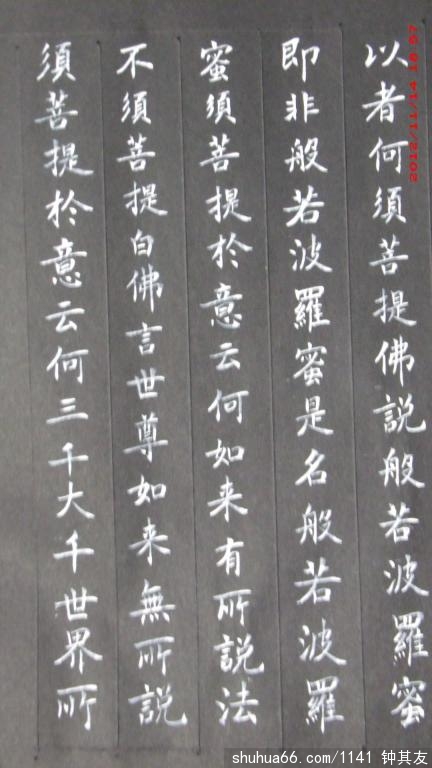 以者何須菩提佛説般若波羅蜜
即非般若波羅蜜是名般若波羅
蜜須菩提於意云何如来有所説法
不須菩提白佛言世尊如来無所説
須菩提於意云何三千大千世界所
2012/11/14 16:57
shuhua66.com/1141 钟其友